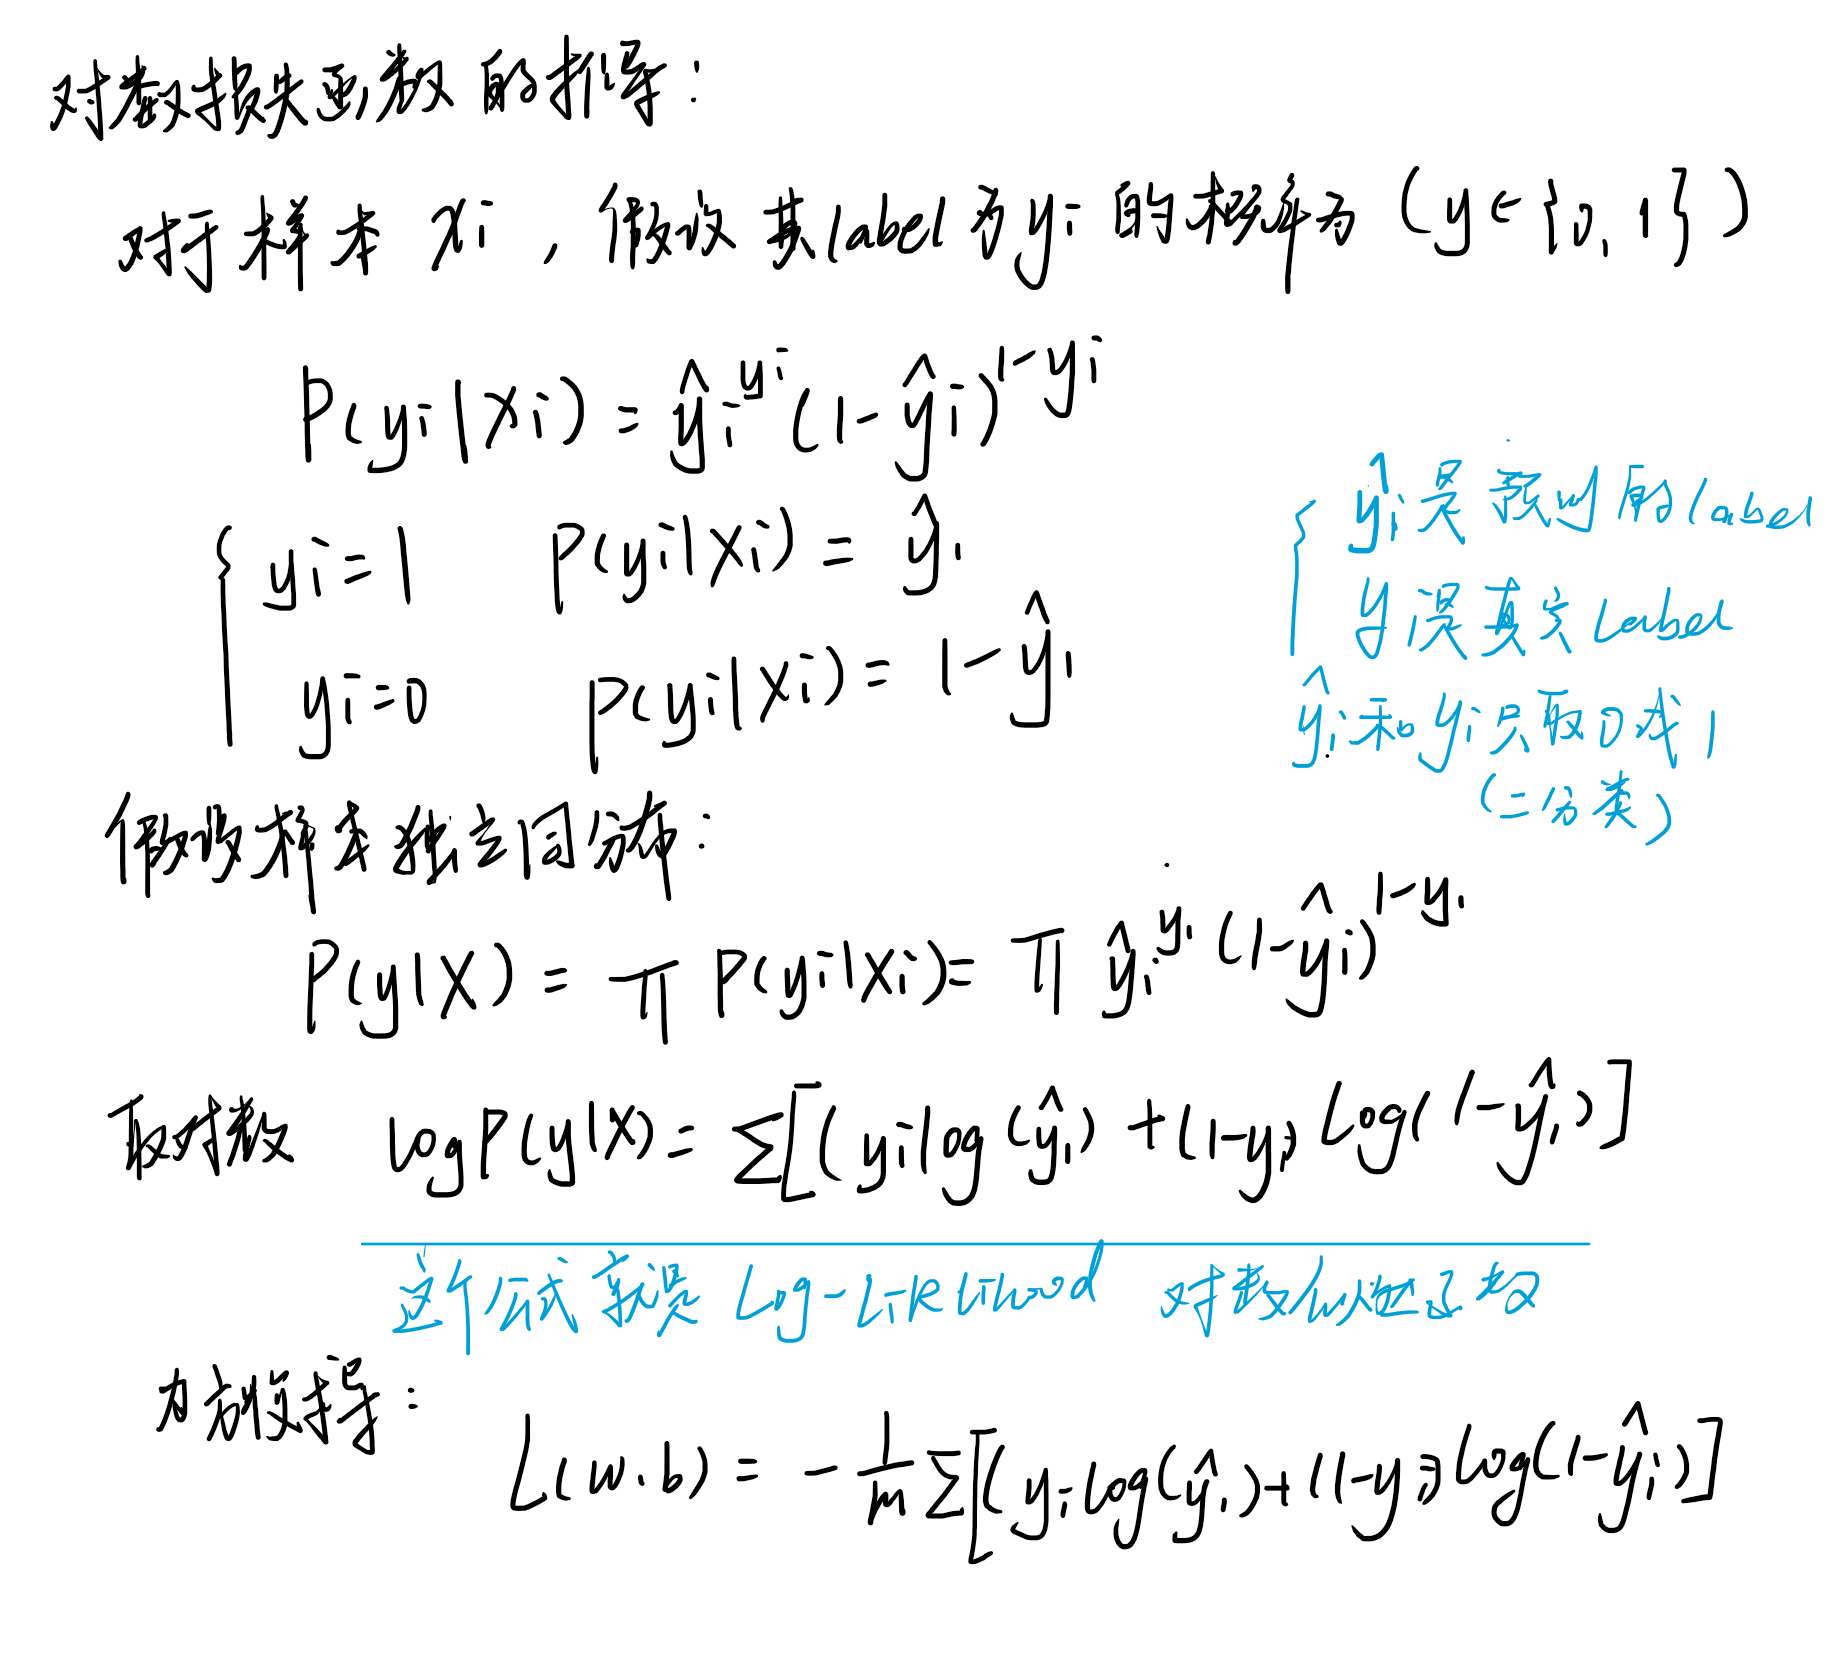 对数损失函数的推导：
对于样本 xi，假设其label为yi的概率为（y∈{0,1}）
P(yi|xi) = ŷi^yi (1-ŷi)^1-yi
yi=1 P(yi|xi) = ŷi
yi=0 P(yi|xi) = 1-ŷi
ŷi是预测的label
yi是真实label
ŷi和yi只取0或1
（二分类）
假设样本独立同分布：
P(y|X) = π P(yi|xi) = π ŷi^yi (1-ŷi)^1-yi
取对数 log P(y|X) = Σ[(yi log(ŷi) + (1-yi) log(1-ŷi)]
这个公式就是 Log-Likelihood 对数似然函数
为方便求导：
L(w.b) = -1/m Σ[(yi log(ŷi) + (1-yi) log(1-ŷi)]